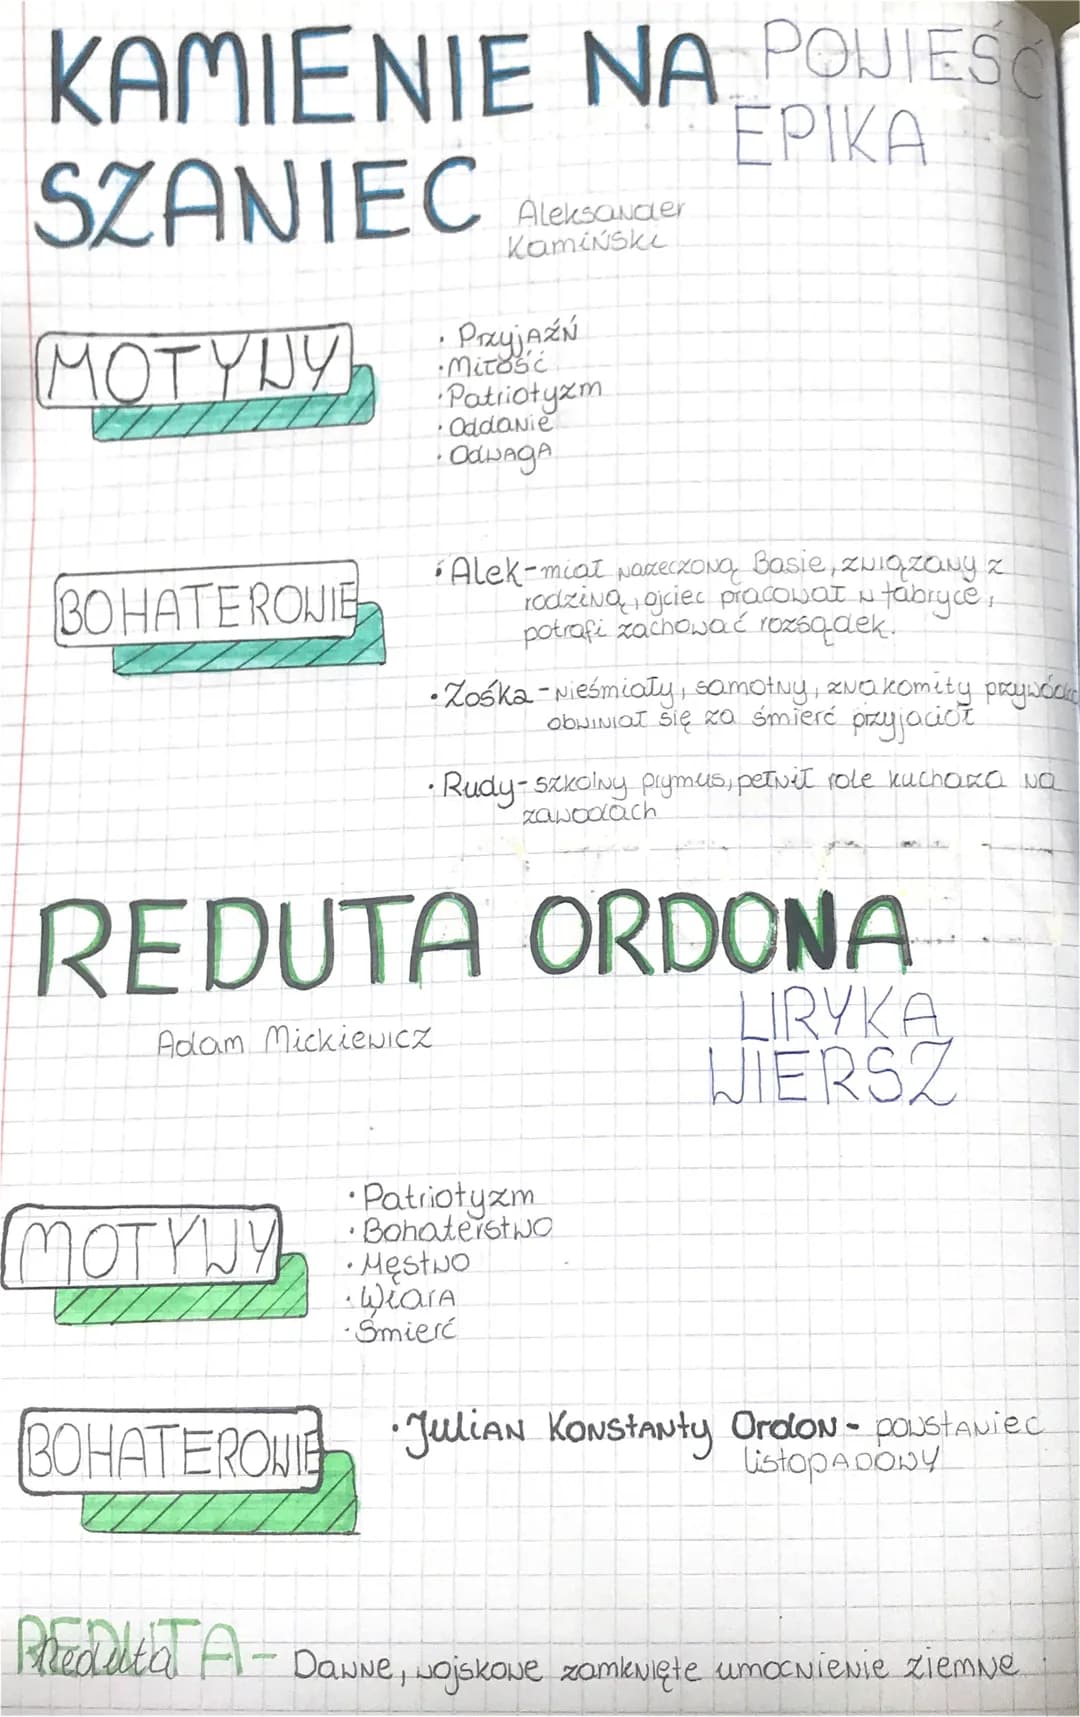 KAMIENIE NA
SZANIEC
POWIEŚĆ
EPIKA
Aleksander
Kamiński
MOTYWY
· Przyjaźń
· Miłość
· Patriotyzm
· Oddanie
· Odwaga
BOHATEROWIE
· Alek - miał narzeczoną Basie, związany z
rodziną, ojciec pracował w fabryce,
potrafi zachować rozsądek.
· Zośka - nieśmiały, samotny, znakomity
obwiniał się za śmierć przyjaciół
· Rudy - szkolny prymus, pełnił role kucharza na
zawodach
REDUTA ORDONA
Adam Mickiewicz
LIRYKA
WIERSZ
MOTYWY
· Patriotyzm
· Bohaterstwo
· Męstwo
· Wiara
· Śmierć
BOHATEROWIE
· Julian Konstanty Ordon - powstaniec
listopadowy
REDUTA - Dawne, wojskowe zamknięte umocnienie ziemne
Reduta